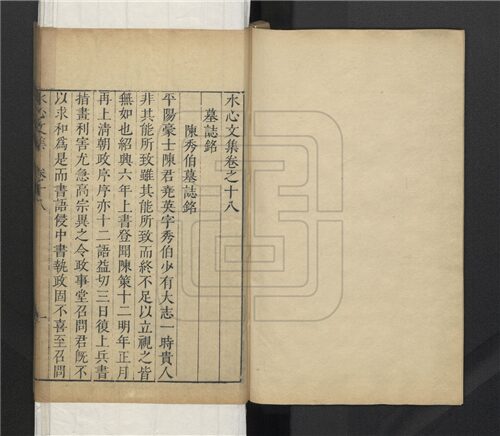 水心文集卷之十八
墓誌銘
陳秀伯墓誌銘
平陽豪士陳君堯英字秀伯少有大志一時貴人
皆非其能所致雖其能所致而終不足以立視之皆
無如也紹興六年上書登聞陳策十二明年正月
再上清朝政序序亦十二語益切三日復上兵書
措畫利害尤急高宗異之令政事堂召問君既不
以求和為是而書語侵中書執政固不喜至召問
水心文集 卷十八 一